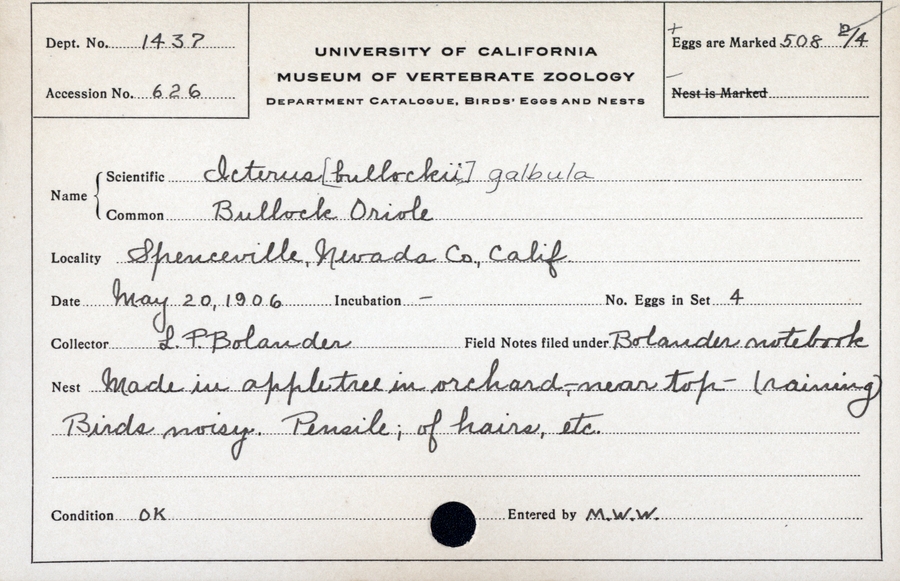 Dept. No. 1437
Accession No. 626
UNIVERSITY OF CALIFORNIA
MUSEUM OF VERTEBRATE ZOOLOGY
DEPARTMENT CATALOGUE, BIRDS' EGGS AND NESTS
+ Eggs are Marked 508 2/4
– Nest is Marked
Name
Scientific Icterus [bullockii] galbula
Common Bullock Oriole
Locality Spenceville, Nevada Co., Calif
Date May 20, 1906 Incubation – No. Eggs in Set 4
Collector L. P. Bolander Field Notes filed under Bolander notebook
Nest Made in appletree in orchard,–near top– (raining)
Birds noisy. Pensile; of hairs, etc.
Condition OK Entered by M.W.W.